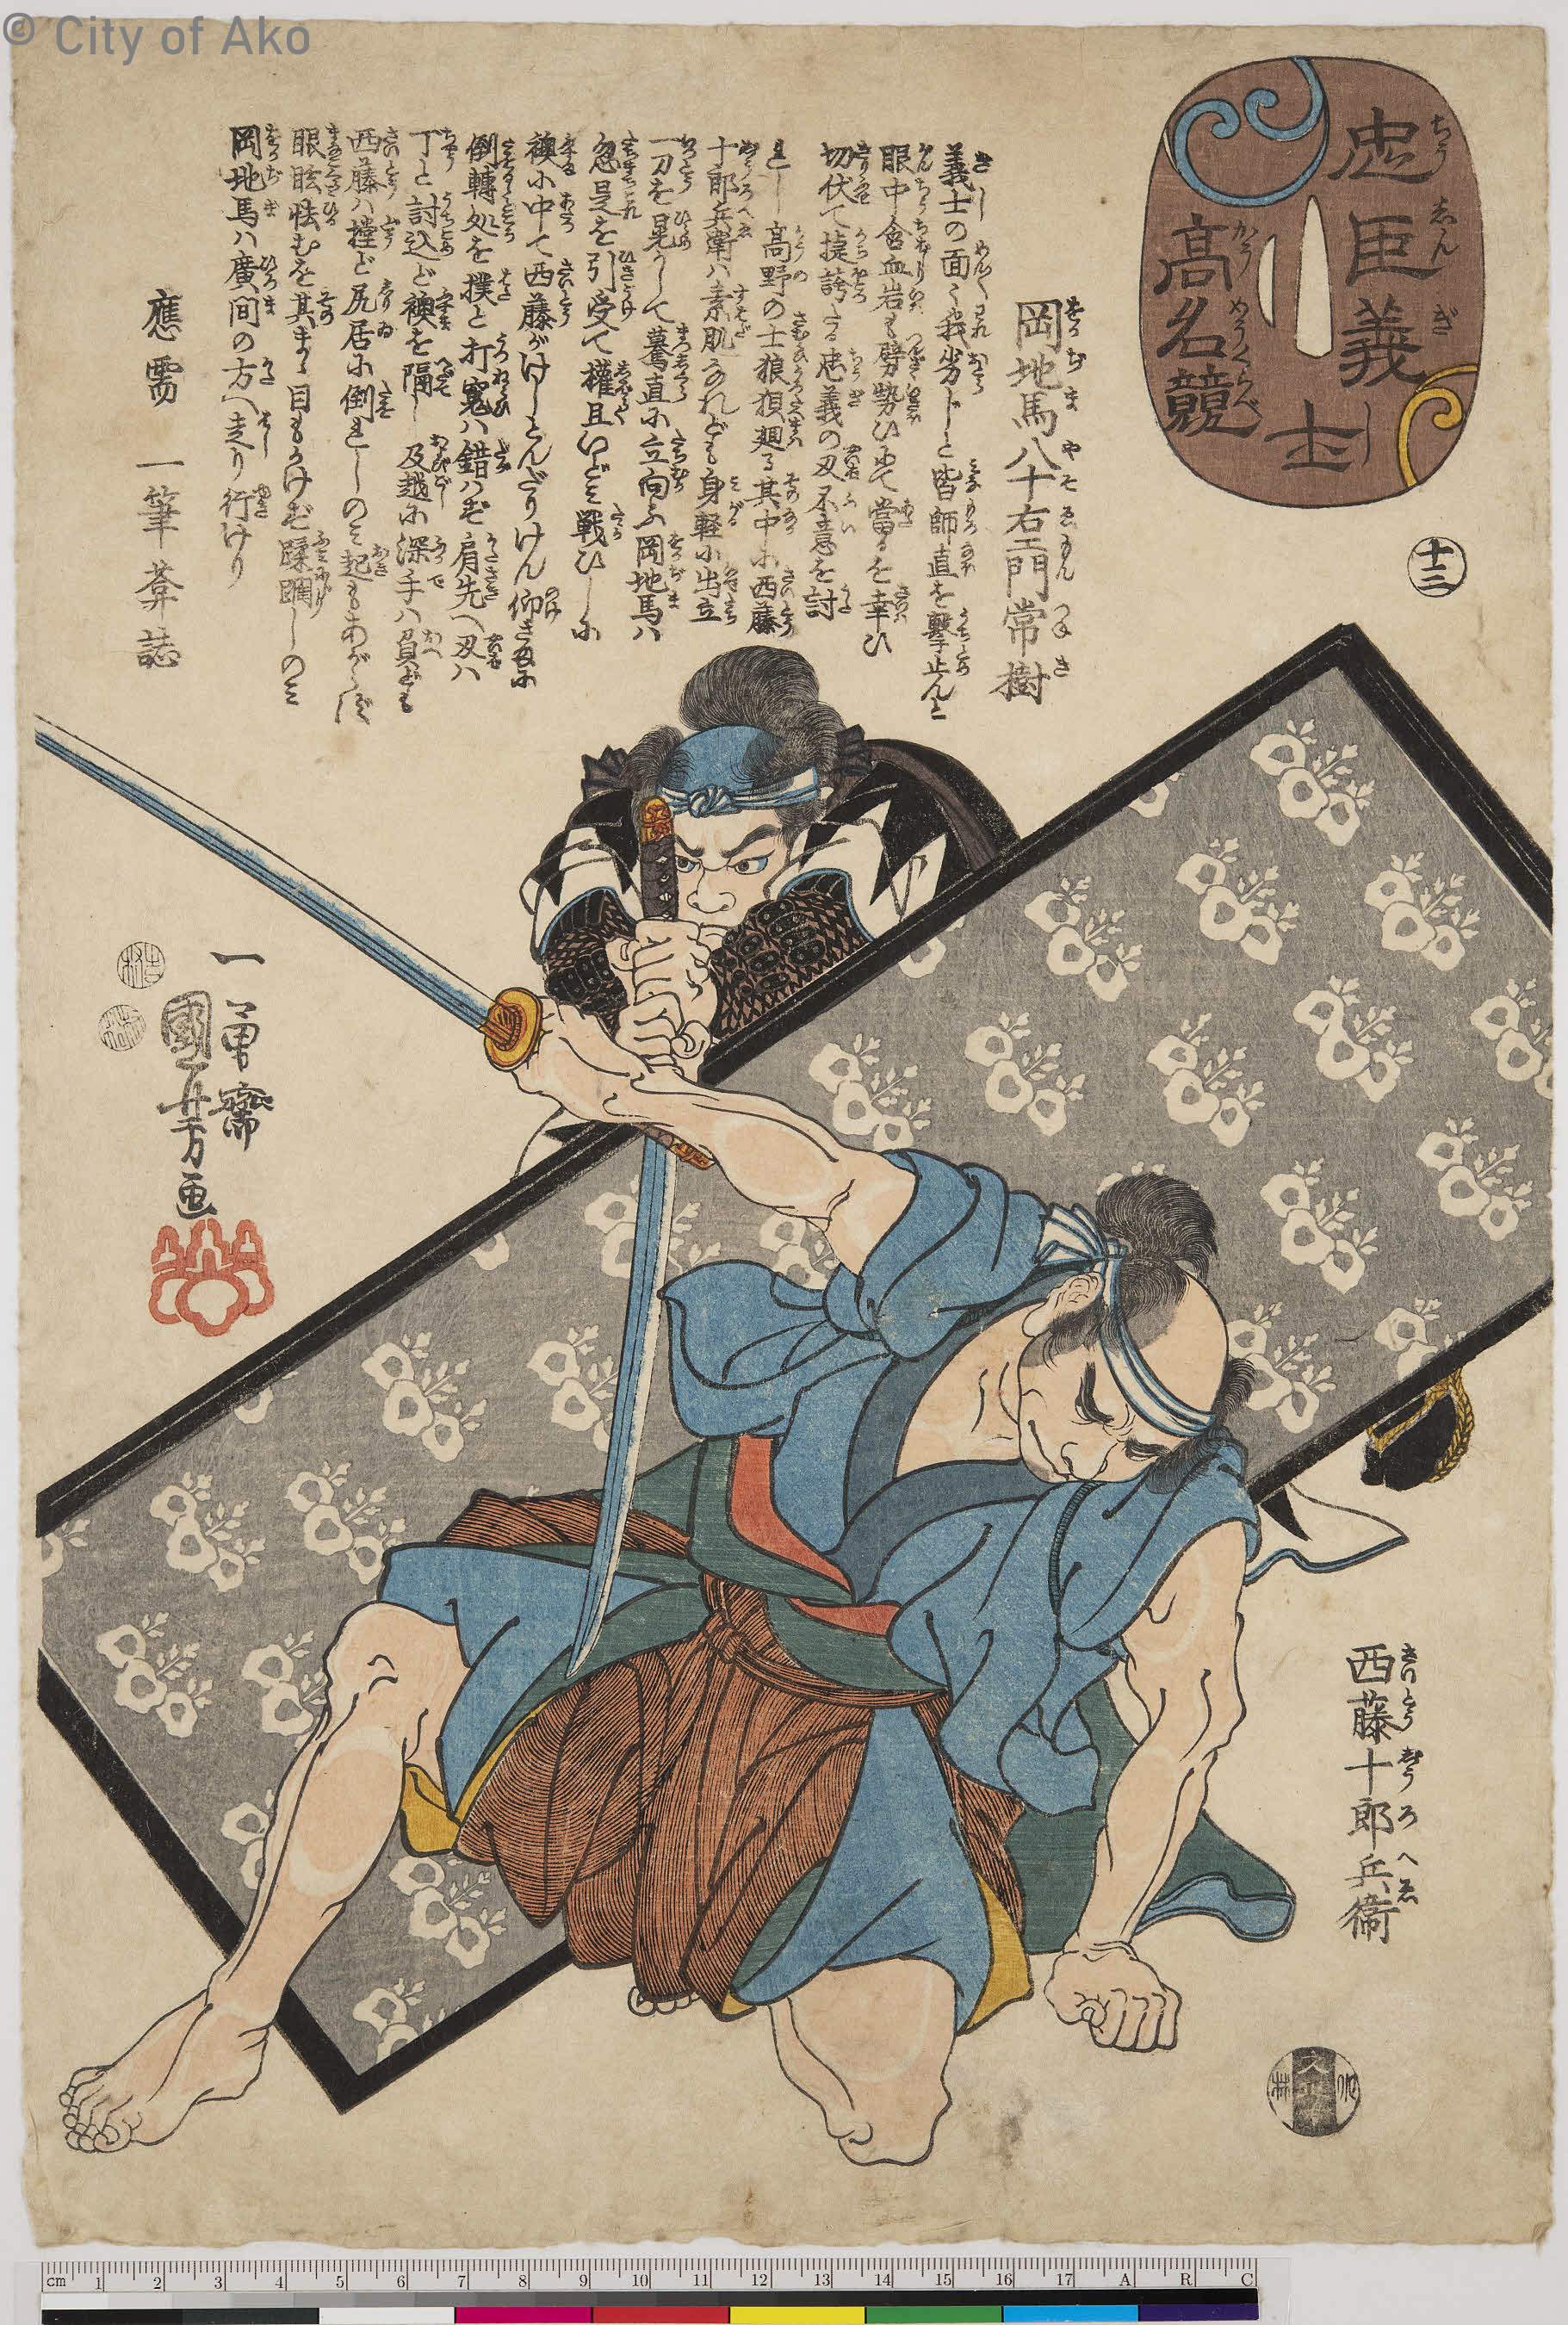 © City of Ako
忠臣義士
高名競
十二
岡地馬八十右エ門常樹
義士の面〻我劣らじと皆師直を撃止んと
眼中血岩も劈勢ひにて當るを幸ひ
切伏て捷誇たる忠義の刄不意を討
れし高野の士狼狽廻る其中に西藤
十郎兵衛ハ素肌なれども身軽に出立
一刀を晃かして驀直に立向ふ岡地馬ハ
忽是を引受て権且いどミ戦ひしに
襖に中て西藤がけしとんだりけん仰さまに
倒轉処を撲と打寃ハ錯ハず肩先へ刄ハ
丁と討込ど襖を隔し及越に深手ハ負ども
西藤ハ撞ど尻居に倒れしのミ起もあがらず
眼眩怯むを其まゝ目もかけず蹂躙しのミ
岡地馬ハ廣間の方へ走り行けり
應需 一筆葊誌
一勇齋
國芳画
西藤十郎兵衛
cm 1 2 3 4 5 6 7 8 9 10 11 12 13 14 15 16 17 A R C